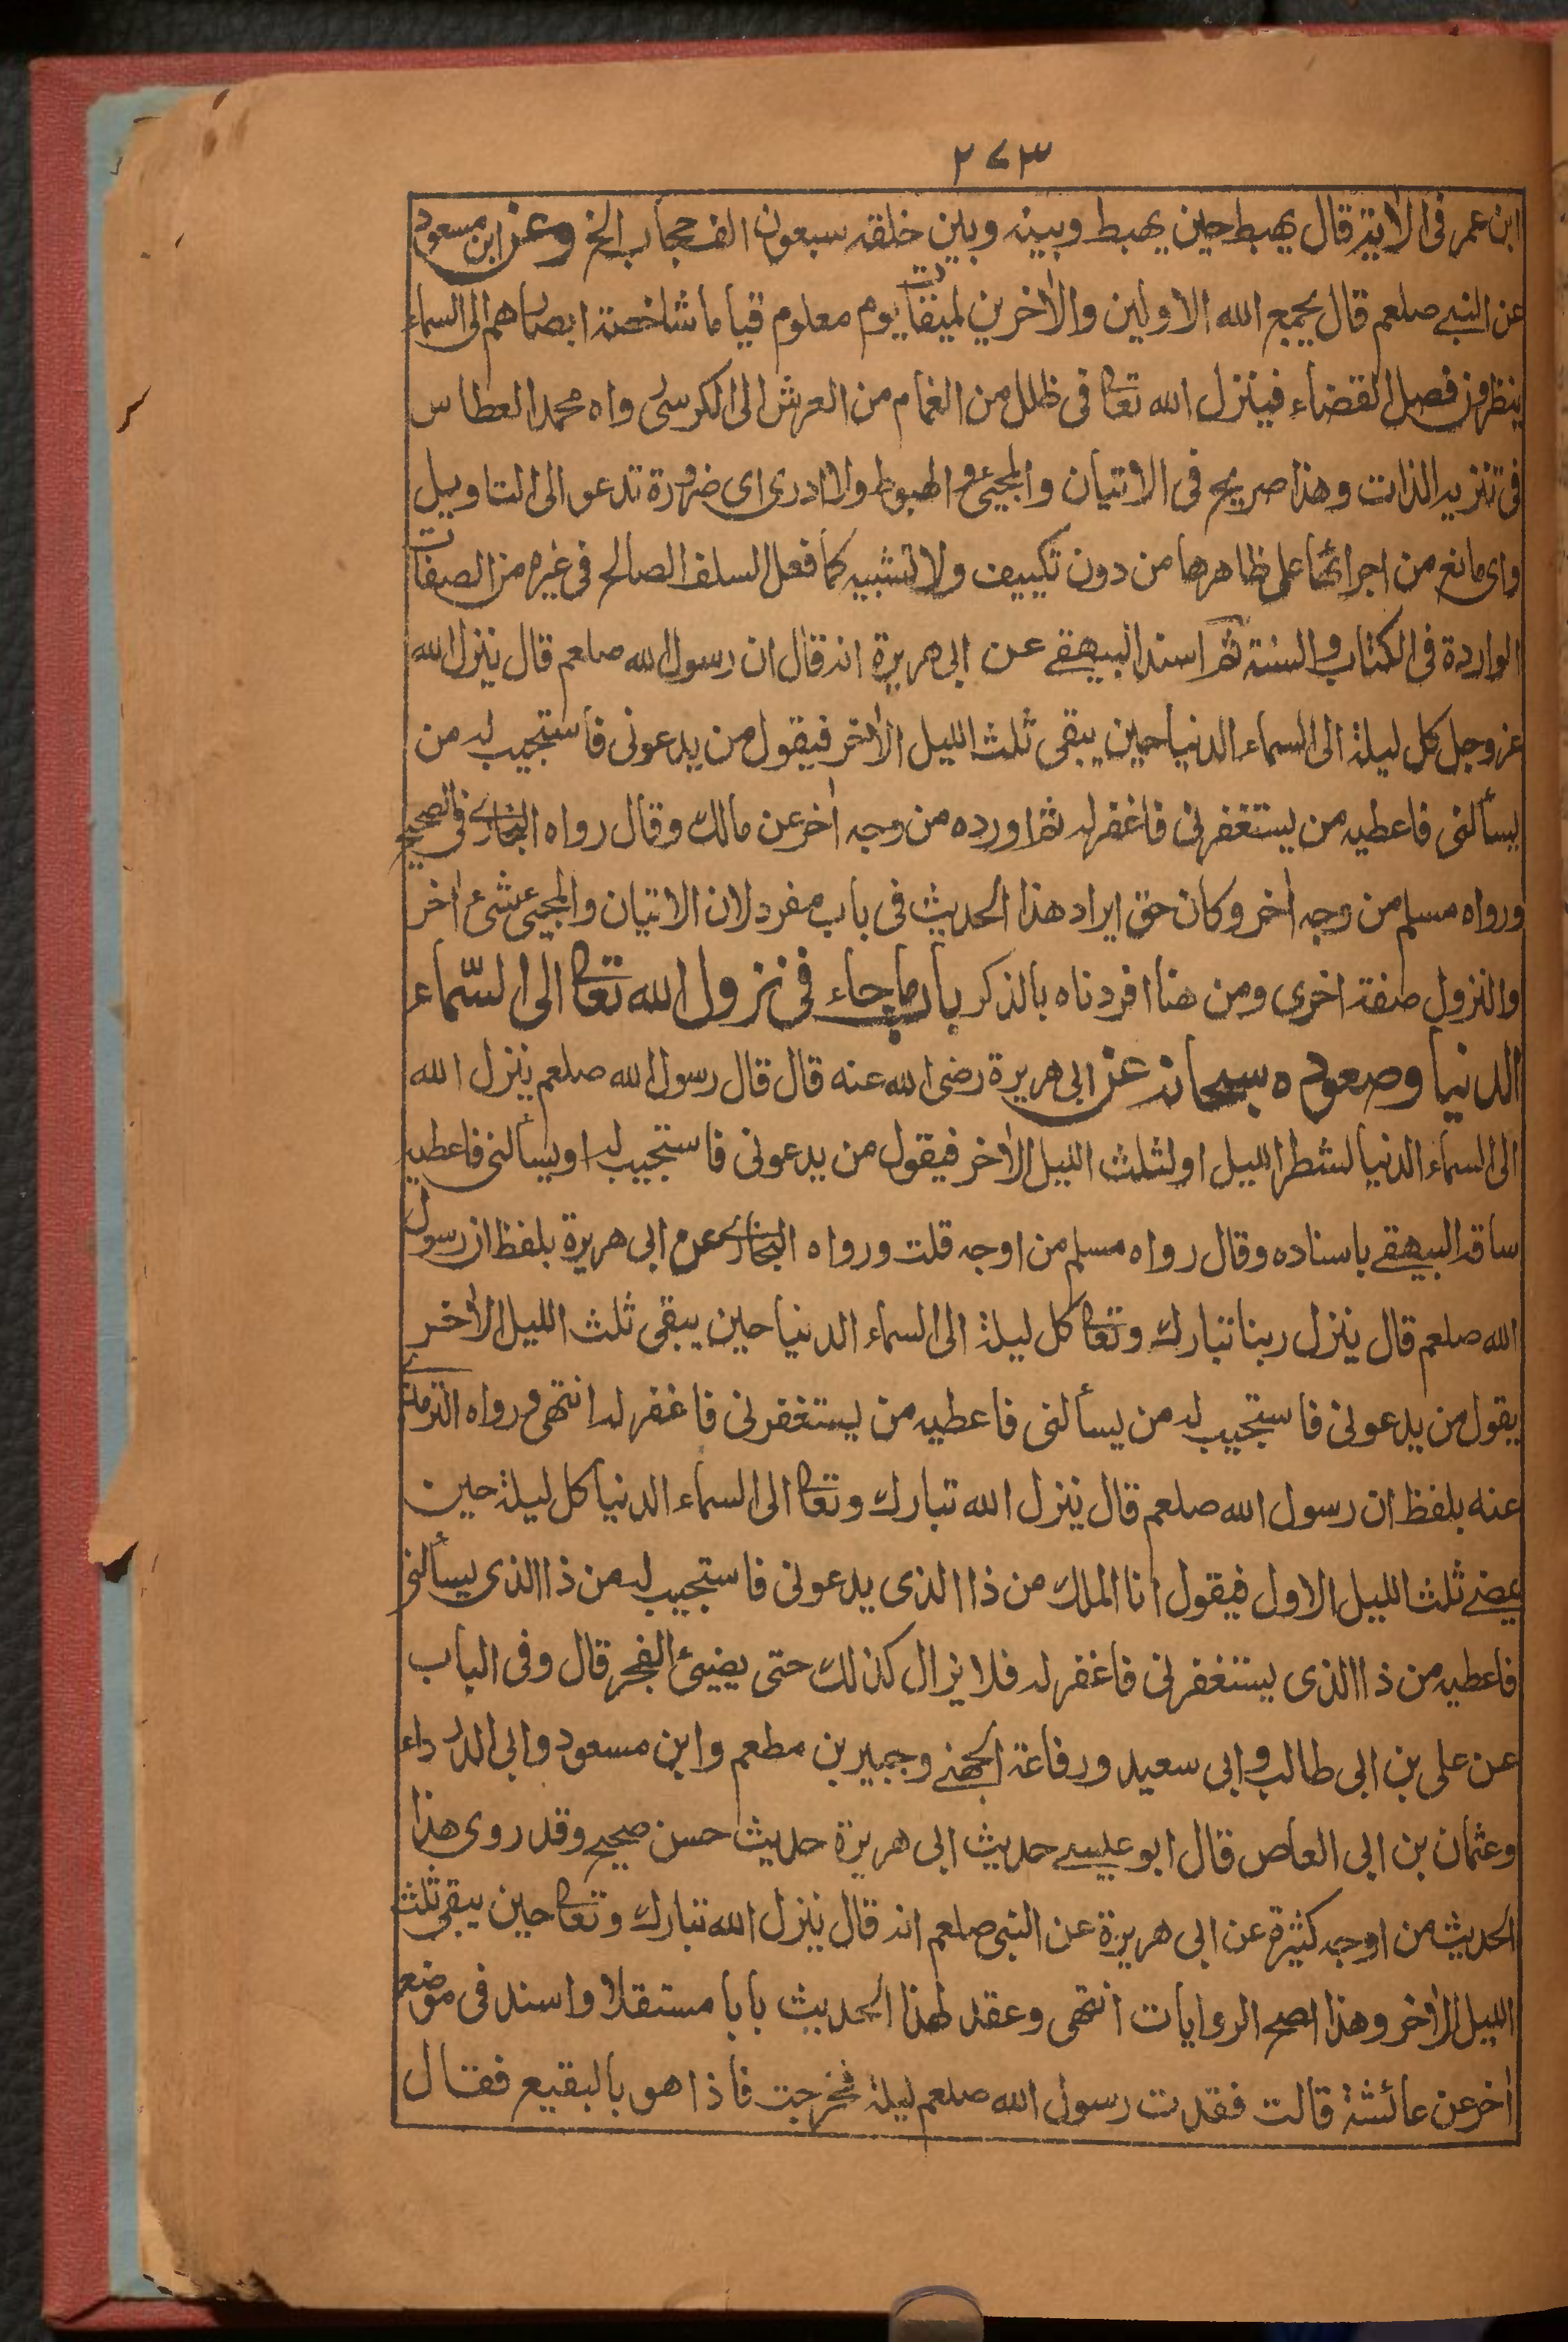 ٢٧٣
ابن عمر فى الاٰية قال يهبط حين يهبط وبينه وبين خلقه سبعون الف حجاب الخ وعن ابن مسعود
عن النبى صلعم قال يجمع الله الاولين والاٰخرين لميقات يوم معلوم قياما شاخصة ابصارهم الى السماء
ينظرون فصل القضاء فينزل الله تعالى فى ظلل من الغمام من العرش الى الكرسى رواه محمد العطاس
فى تنزيه الذات وهذا صريح فى الاتيان والمجيئ والهبوط ولا ادرى اى ضرورة تدعو الى التاويل
واى مانع من اجرائها على ظاهرها من دون تكييف ولا تشبيه كما فعل السلف الصالح فى غيره من الصفات
الواردة فى الكتاب والسنة ثم اسند البيهقى عن ابى هريرة انه قال ان رسول الله صلعم قال ينزل الله
عز وجل كل ليلة الى السماء الدنيا حين يبقى ثلث الليل الاٰخر فيقول من يدعونى فأستجيب له من
يسألنى فاعطيه من يستغفرنى فاغفر له ثم اورده من وجه اٰخر عن مالك وقال رواه البخارى فى الصحيح
ورواه مسلم من وجه اٰخر وكان حق ايراد هذا الحديث فى باب مفرد لان الاتيان والمجيئ شئ اٰخر
والنزول صفة اخرى ومن هنا افردناه بالذكر باب ما جاء فى نزول الله تعالى الى السّماء
الدنيا وصعوده سبحانه عن ابى هريرة رضى الله عنه قال قال رسول الله صلعم ينزل الله
الى السماء الدنيا لشطر الليل او لثلث الليل الاٰخر فيقول من يدعونى فاستجيب له او يسألنى فاعطيه
ساقه البيهقى باسناده وقال رواه مسلم من اوجه قلت ورواه البخارى عن ابى هريرة بلفظ ان رسول
الله صلعم قال ينزل ربنا تبارك وتعالى كل ليلة الى السماء الدنيا حين يبقى ثلث الليل الاٰخر
يقول من يدعونى فاستجيب له من يسألنى فاعطيه من يستغفرنى فاغفر له انتهى ورواه الترمذى
عنه بلفظ ان رسول الله صلعم قال ينزل الله تبارك وتعالى الى السماء الدنيا كل ليلة حين
يمضى ثلث الليل الاول فيقول انا الملك من ذا الذى يدعونى فاستجيب له من ذا الذى يسألنى
فاعطيه من ذا الذى يستغفرنى فاغفر له فلا يزال كذلك حتى يضيئ الفجر قال وفى الباب
عن على بن ابى طالب وابى سعيد ورفاعة الجهنى وجبير بن مطعم وابن مسعود وابى الدرداء
وعثمان بن ابى العاص قال ابو عيسى حديث ابى هريرة حديث حسن صحيح وقد روى هذا
الحديث من اوجه كثيرة عن ابى هريرة عن النبى صلعم انه قال ينزل الله تبارك وتعالى حين يبقى ثلث
الليل الاٰخر وهذا اصح الروايات انتهى وعقد لهذا الحديث بابا مستقلا واسند فى موضع
اٰخر عن عائشة قالت فقدت رسول الله صلعم ليلة فخرجت فاذا هو بالبقيع فقال